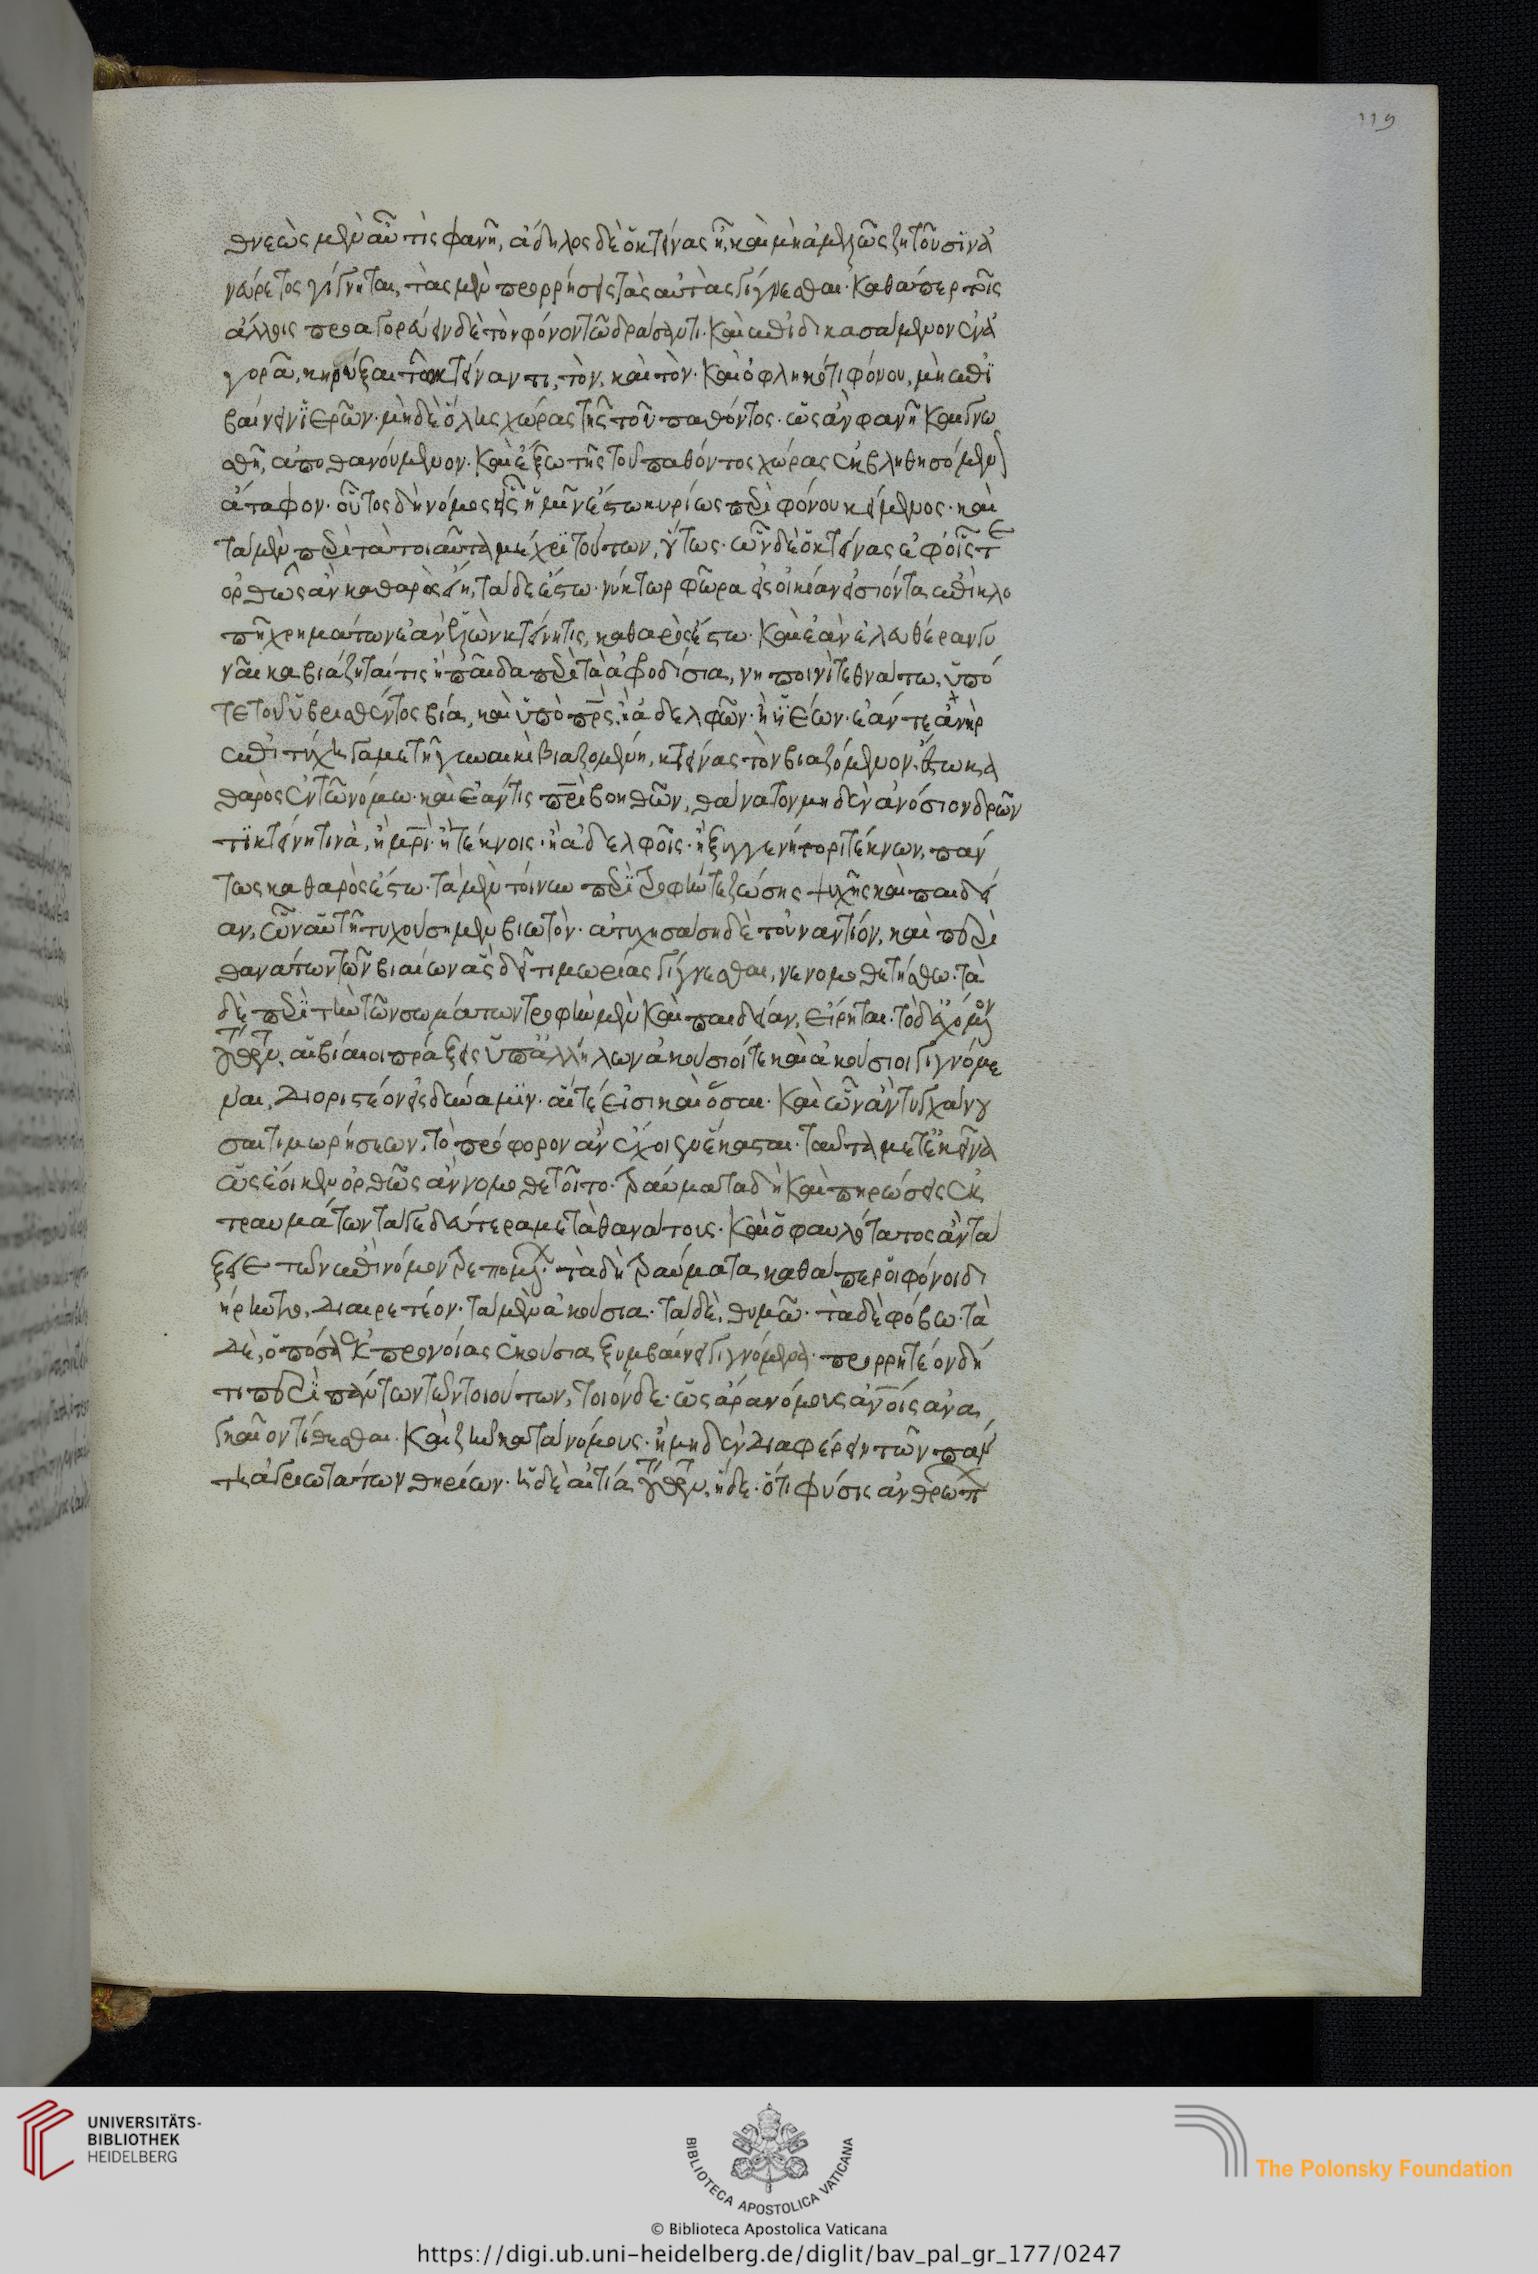 119
θνεὼς μὲν αὖ τὶς φανῆ, ἄδηλος δὲ ὁ κτείνας ἦ, καὶ μὴ ἀμελῶς ζητοῦσιν ἀ
νεύρετος γίγνηται, τὰς μὲν προρρήσεις τὰς αὐτὰς γίγνεσθαι. καθάπερ τοῖς
ἄλλοις προαγορεύειν δὲ τὸν φόνον τῶ δράσαντι. καὶ ἐπιδικασάμενον ἐν ἀ
γορᾶ, κηρύξαι τῶ κτείναντι, τὸν, καὶ τὸν. καὶ ὀφληκότι φόνου, μὴ ἐπι
βαίνειν ἱερῶν. μὴ δὲ ὅλης χώρας τῆς τοῦ παθόντος. ὡς ἂν φανῆ καὶ γνω
σθῆ, ἀποθανούμενον. καὶ ἔξω τῆς τοῦ παθόντος χώρας ἐκβληθησόμενον
ἄταφον. οὗτος δὴ νόμος εἷς ἡμῖν ἔστω κυρίως περὶ φόνου κείμενος. καὶ
τὰ μὲν περὶ τὰ τοιαῦτα μέχρι τούτων, οὕτως. ὧν δὲ ὁ κτείνας ἐφ' οἷς τε
ὀρθῶς ἂν καθαρὸς εἴη, τάδε ἔστω. νύκτωρ φῶρα εἰς οἰκίαν εἰσιόντα ἐπὶ κλο
πῆ χρημάτων ἐὰν ἑλὼν κτείνη τις, καθαρὸς ἔστω. καὶ ἐὰν ἐλευθέραν γυ
ναῖκα βιάζηταί τις ἢ παῖδα περὶ τὰ ἀφροδίσια, νηποινὶ τεθνάτω, ὑπό
τε τοῦ ὑβρισθέντος βία, καὶ ὑπὸ πρς. ἢ ἀδελφῶν. ἢ ὑϊέων. ἐάν τε ἀνὴρ
ἐπιτύχη γαμετῆ γυναικὶ βιαζομένη, κτείνας τὸν βιαζόμενον, ἔστω κα
θαρὸς ἐν τῶ νόμω. καὶ ἐάν τις πρὶ βοηθῶν, θάνατον μηδὲν ἀνόσιον δρῶν
τι κτείνη τινὰ, ἢ μρὶ. ἢ τέκνοις. ἢ ἀδελφοῖς. ἢ ξυγγενήτορι τέκνων, πάν
τως καθαρὸς ἔστω. τὰ μὲν τοίνυν περὶ τροφήν τε ζώσης ψυχῆς καὶ παιδεί
αν, ὧν αὐτῆ τυχούση μὲν βιωτὸν. ἀτυχησάση δὲ τοὐναντίον, καὶ περὶ
θανάτων τῶν βιαίων ἃς δεῖ τιμωρίας γίγνεσθαι, νενομοθετήσθω. τὰ
δὲ περὶ τὴν τῶν σωμάτων τροφὴν μὲν καὶ παιδείαν, εἴρηται. τὸ δ' ἐχόμενον
τούτων, αἱ βίαιοι πράξεις ὑπ' ἀλλήλων ἀκούσιοί τε καὶ ἑκούσιοι γιγνόμε
ναι, διοριστέον εἰς δύναμιν. αἵ τέ εἰσι καὶ ὅσαι. καὶ ὧν ἂν τυγχάνου
σαι τιμωρήσεων, τὸ πρόσφορον ἂν ἔχοιεν ἕκασται. ταῦτα μετ' ἐκεῖνα
ὡς ἔοικεν ὀρθῶς ἂν νομοθετοῖτο. τραύματα δὴ καὶ πηρώσεις ἐκ
τραυμάτων τά γε δεύτερα μετὰ θανάτους. καὶ ὁ φαυλότατος ἂν τά
ξειε τῶν ἐπὶ νόμον τρεπομένων. τὰ δὴ τραύματα, καθάπερ οἱ φόνοι δι
ήρηντο, διαιρετέον. τὰ μὲν ἀκούσια. τὰ δὲ, θυμῶ. τὰ δὲ φόβω. τὰ
δὲ, ὁπόσα ἐκ προνοίας ἑκούσια ξυμβαίνει γιγνόμενα. προρρητέον δή
τι περὶ πάντων τῶν τοιούτων, τοιόνδε. ὡς ἄρα νόμους ἀνοις ἀνα
γκαῖον τίθεσθαι. καὶ ζῆν κατὰ νόμους. ἢ μηδὲν διαφέρειν τῶν πάν
τη ἀγριωτάτων θηρίων. ἡ δὲ αἰτία τούτων, ἥδε. ὅτι φύσις ἀνθρώπων
UNIVERSITÄTS-
BIBLIOTHEK
HEIDELBERG
BIBLIOTECA APOSTOLICA VATICANA
© Biblioteca Apostolica Vaticana
The Polonsky Foundation
https://digi.ub.uni-heidelberg.de/diglit/bav_pal_gr_177/0247